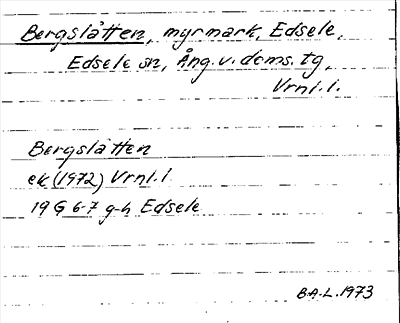 Bergslåtten, myrmark, Edsele,
Edsele sn, Ång. v. doms. tg,
Vrnl. l.
Bergslåtten
ek (1972) Vrnl. l
19 G 6-7 g-h Edsele
B-A.L. 1973